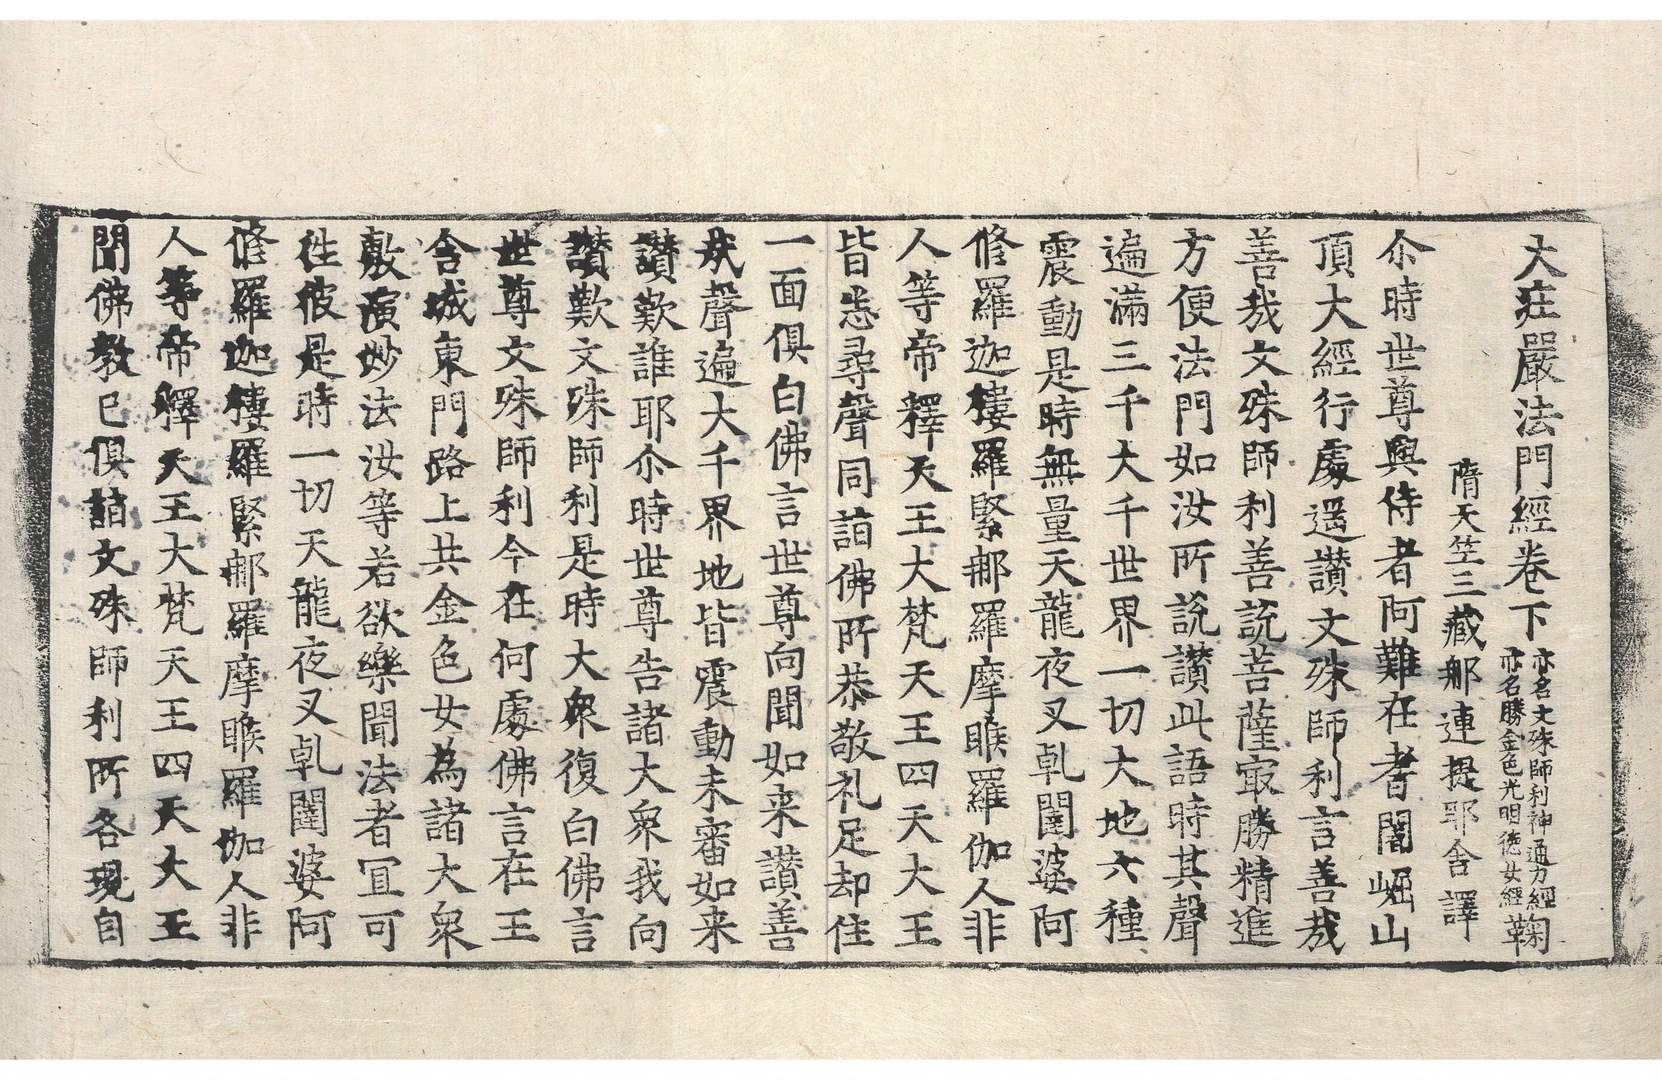 大庄嚴法門經卷下 亦名文殊師利神通力經 亦名勝金色光明徳女經 鞠
隋天竺三藏那連提耶舍譯
尒時世尊與侍者阿難在耆闍崛山
頂大經行處遥讃文殊師利言善哉
善哉文殊師利善説菩薩㝡勝精進
方便法門如汝所説讃此語時其聲
遍滿三千大千世界一切大地六種
震動是時無量天龍夜叉乹闥婆阿
脩羅迦樓羅緊那羅摩睺羅伽人非
人等帝釋天王大梵天王四天大王
皆悉尋聲同詣佛所恭敬礼足却住
一面俱白佛言世尊向聞如来讃善
哉聲遍大千界地皆震動未審如来
讃歎誰耶尒時世尊告諸大衆我向
讃歎文殊師利是時大衆復白佛言
世尊文殊師利今在何處佛言在王
舍城東門路上共金色女為諸大衆
敷演妙法汝等若欲樂聞法者冝可
徃彼是時一切天龍夜叉乹闥婆阿
脩羅迦樓羅緊那羅摩睺羅伽人非
人等帝釋天王大梵天王四天大王
聞佛教已俱詣文殊師利所各現自